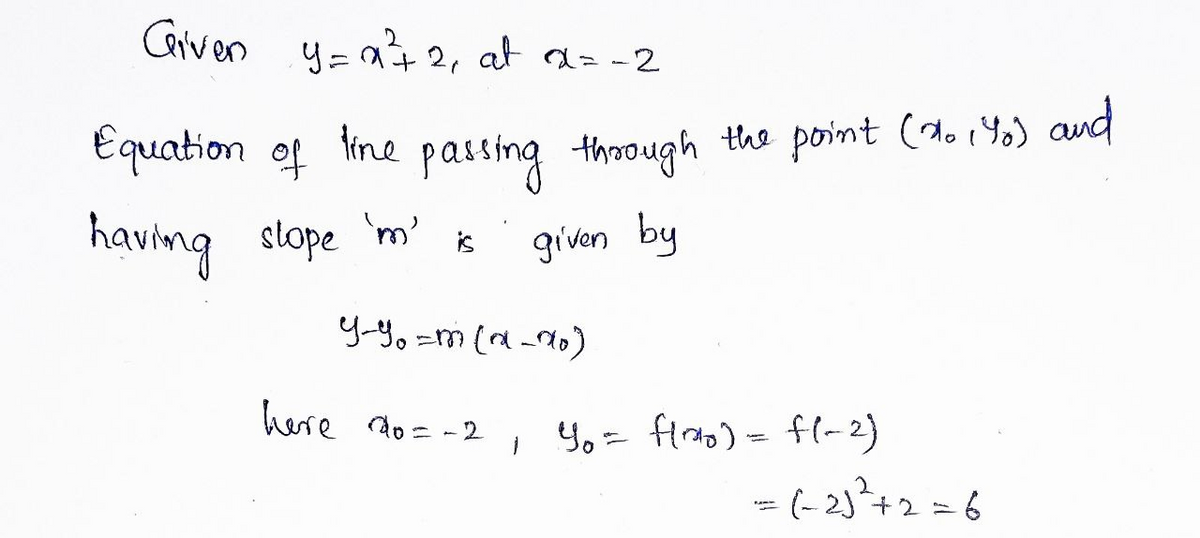 Given y = x² + 2, at x = -2
Equation of line passing through the point (x₀, y₀) and
having slope 'm' is given by
y - y₀ = m (x - x₀)
here x₀ = -2, y₀ = f(x₀) = f(-2)
= (-2)² + 2 = 6